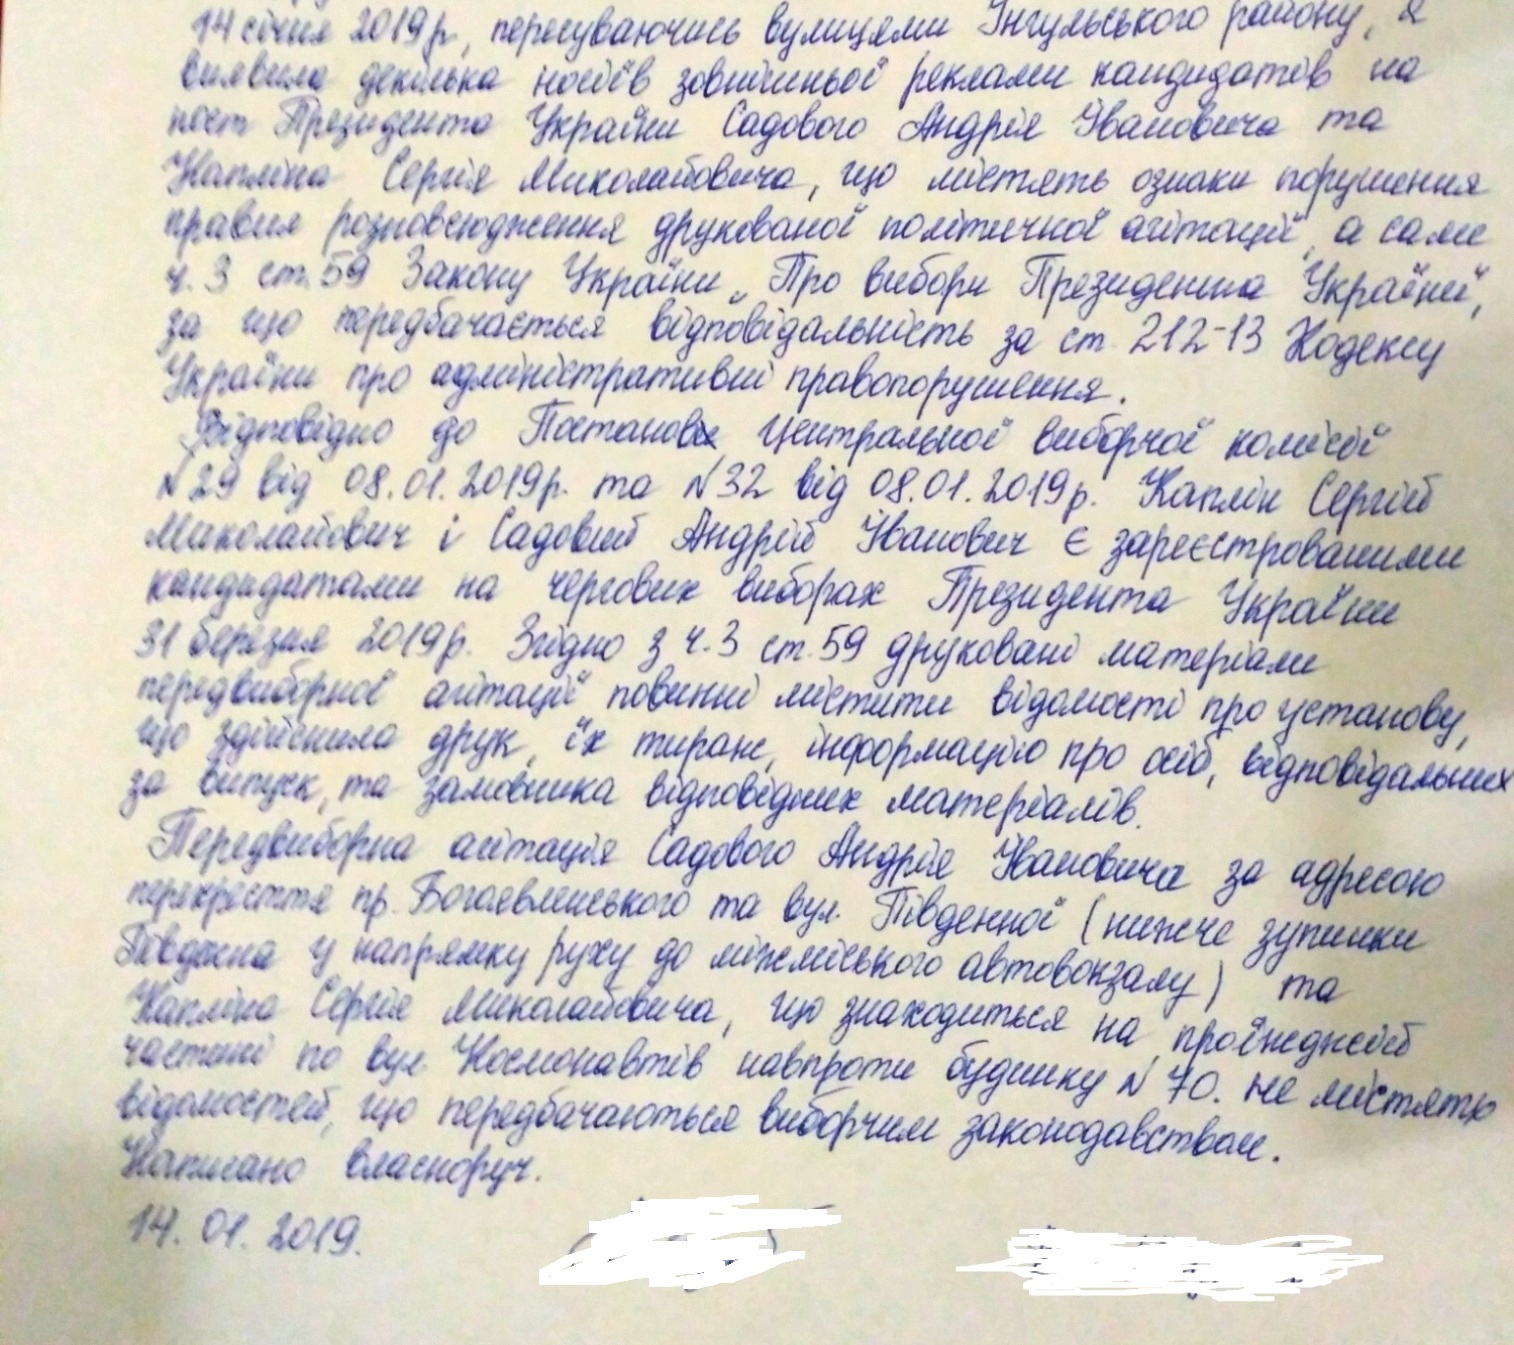 14 січня 2019р, пересуваючись вулицями Інгульського району, я
виявила декілька носіїв зовнішньої реклами кандидатів на
пост Президента України Садового Андрія Івановича та
Капліна Сергія Миколайовича, що містять ознаки порушення
правил розповсюдження друкованої політичної агітації, а саме
ч. 3 ст. 59 Закону України „Про вибори Президента України",
за що передбачається відповідальність за ст. 212-13 Кодексу
України про адміністративні правопорушення.
Відповідно до Постанов Центральної виборчої комісії
№29 від 08.01.2019р. та №32 від 08.01.2019р. Каплін Сергій
Миколайович і Садовий Андрій Іванович є зареєстрованими
кандидатами на чергових виборах Президента України
31 березня 2019р. Згідно з ч.3 ст.59 друковані матеріали
передвиборної агітації повинні містити відомості про установу,
що здійснила друк, їх тираж, інформацію про осіб, відповідальних
за випуск, та замовника відповідних матеріалів.
Передвиборна агітація Садового Андрія Івановича за адресою
перехрестя пр. Богоявленського та вул. Південної (нижче зупинки
Південна у напрямку руху до міжміського автовокзалу) та
Капліна Сергія Миколайовича, що знаходиться на проїжджій
частині по вул. Космонавтів навпроти будинку №70. не містять
відомостей, що передбачаються виборчим законодавством.
Написано власноруч.
14. 01. 2019.